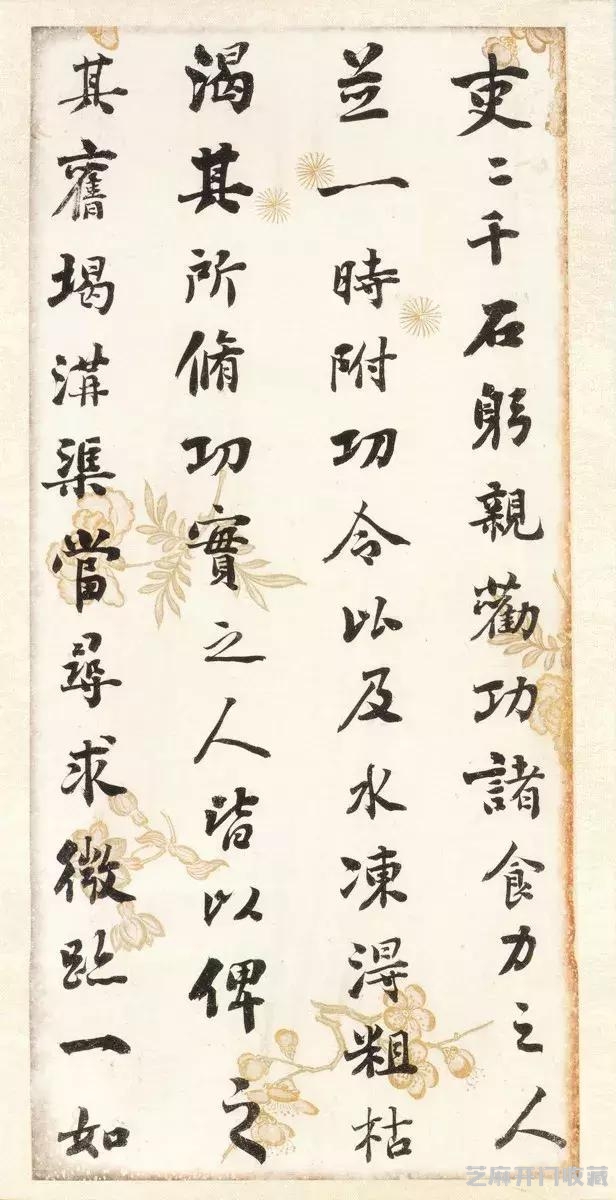 吏二千石躬親勸功諸食力之人
並一時附功令以及水凍淂粗枯
渴其所脩功實之人皆以俾之
其舊堨溝渠當尋求微跡一如
芝麻开门收藏